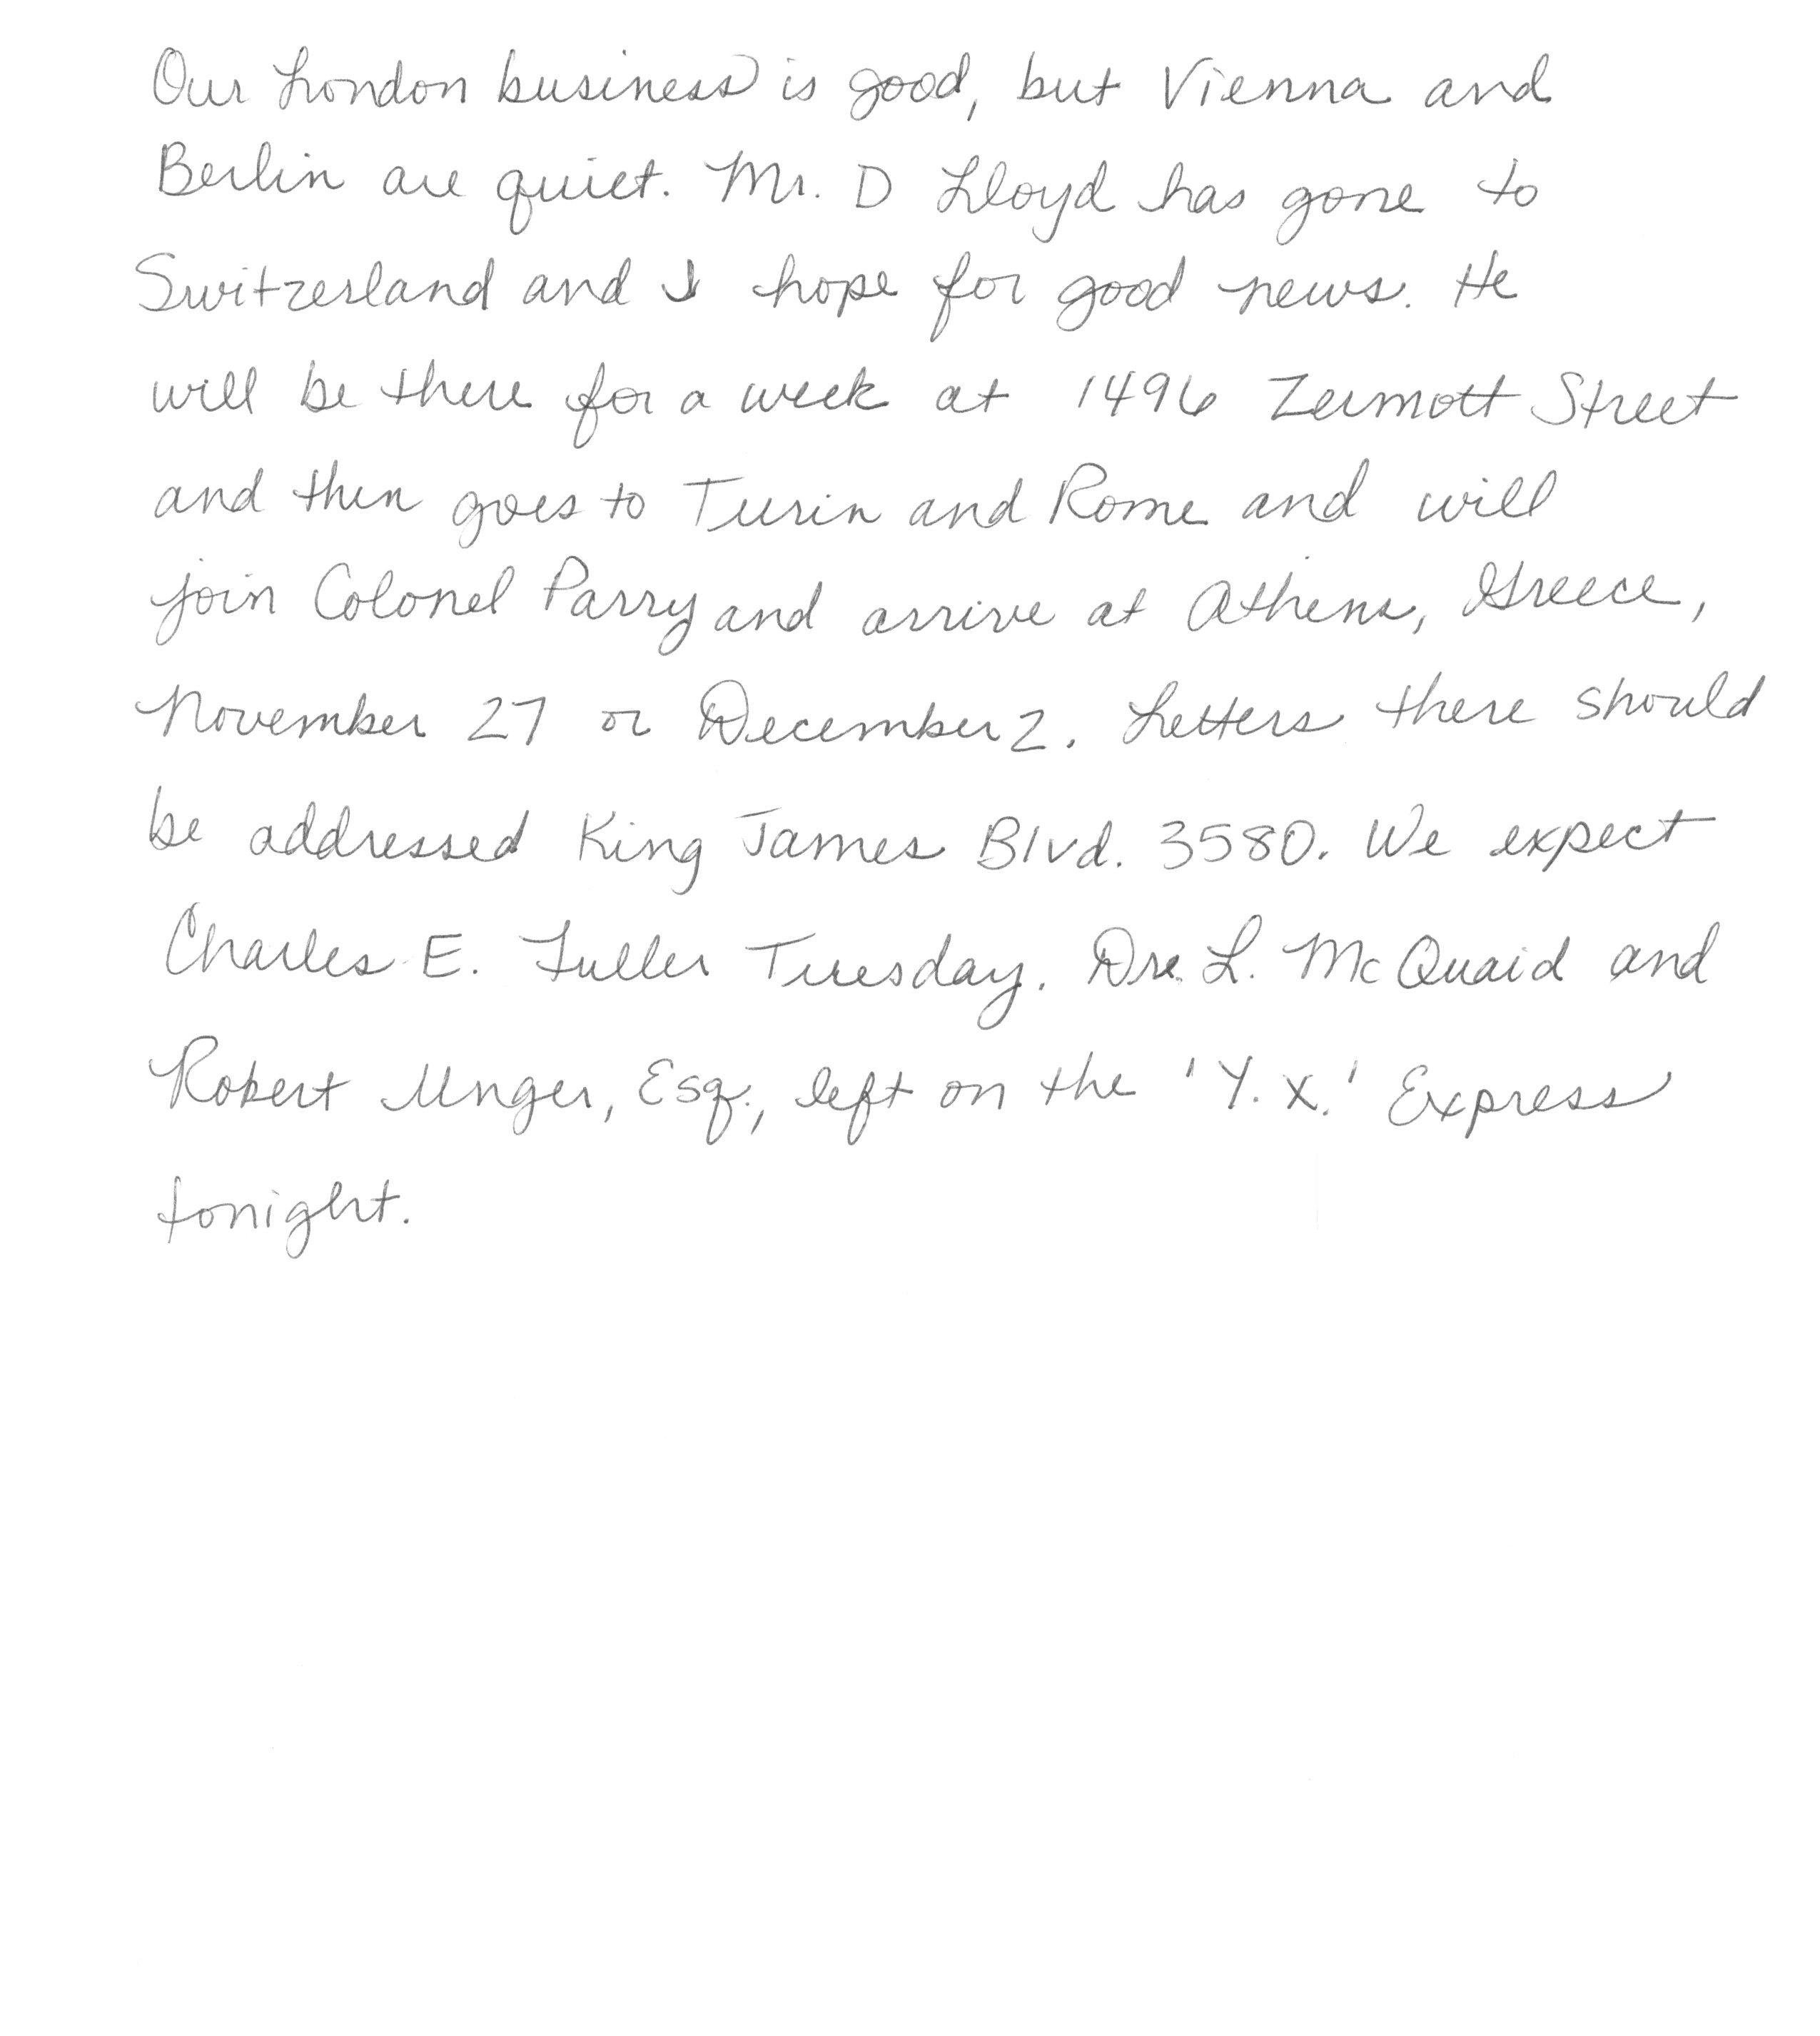 Our London business is good, but Vienna and
Berlin are quiet. Mr. D Lloyd has gone to
Switzerland and I hope for good news. He
will be there for a week at 1496 Zermott Street
and then goes to Turin and Rome and will
join Colonel Parry and arrive at Athens, Greece,
November 27 or December 2. Letters there should
be addressed King James Blvd. 3580. We expect
Charles E. Fuller Tuesday. Dr. L. McQuaid and
Robert Unger, Esq., left on the 'Y.X.' Express
tonight.